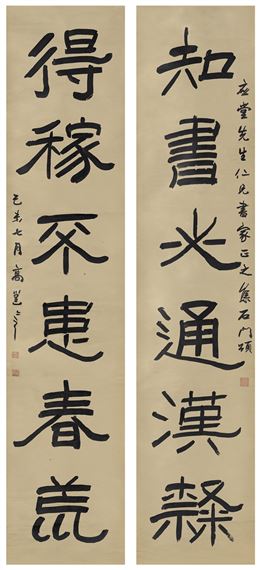 堂先生仁兄書家正之集石門頌
知書必通漢隸
得稼不患春荒
己未七月高邕之